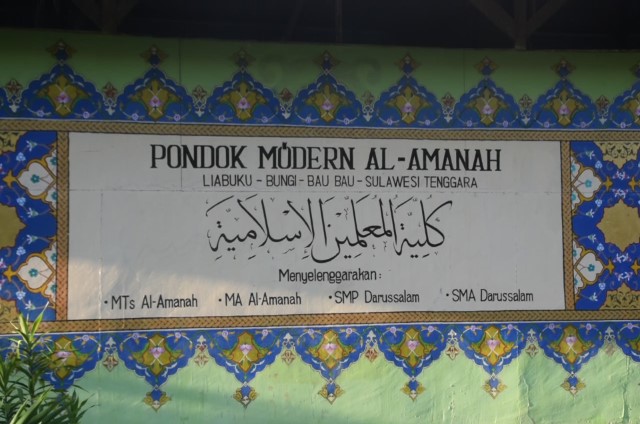 PONDOK MODERN AL-AMANAH
LIABUKU - BUNGI - BAU BAU - SULAWESI TENGGARA
كلية المعلمين الإسلامية
Menyelenggarakan:
• MTs Al-Amanah • MA Al-Amanah • SMP Darussalam • SMA Darussalam